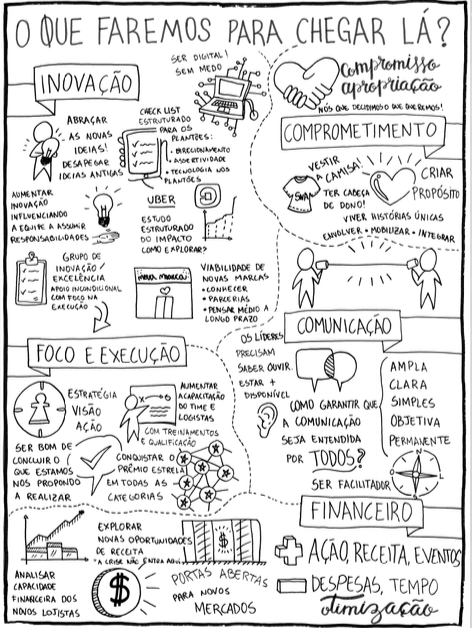 O QUE FAREMOS PARA CHEGAR LÁ?
INOVAÇÃO
SER DIGITAL!
SEM MEDO
ABRAÇAR
AS NOVAS
IDEIAS!
DESAPEGAR
IDEIAS ANTIGAS
CHECK LIST
ESTRUTURADO
PARA OS
PLANTÕES:
• DIRECIONAMENTO
• ASSERTIVIDADE
• TECNOLOGIA NOS
PLANTÕES
AUMENTAR
INOVAÇÃO
INFLUENCIANDO
A EQUIPE A ASSUMIR
RESPONSABILIDADES
UBER
ESTUDO
ESTRUTURADO
DO IMPACTO
COMO EXPLORAR?
GRUPO DE
INOVAÇÃO/
EXCELÊNCIA
APOIO INCONDICIONAL
COM FOCO NA
EXECUÇÃO
VIABILIDADE DE
NOVAS MARCAS
• CONHECER
• PARCERIAS
• PENSAR MÉDIO A
LONGO PRAZO
Compromisso
apropriação
NÓS QUE DECIDIMOS O QUE QUEREMOS!
COMPROMETIMENTO
VESTIR
A CAMISA!
TER CABEÇA
DE DONO!
CRIAR
PROPÓSITO
VIVER HISTÓRIAS ÚNICAS
ENVOLVER • MOBILIZAR • INTEGRAR
COMUNICAÇÃO
OS LÍDERES
PRECISAM
SABER OUVIR.
ESTAR +
DISPONÍVEL
COMO GARANTIR QUE
A COMUNICAÇÃO
SEJA ENTENDIDA
POR TODOS?
AMPLA
CLARA
SIMPLES
OBJETIVA
PERMANENTE
SER FACILITADOR
FOCO E EXECUÇÃO
ESTRATÉGIA
VISÃO
AÇÃO
AUMENTAR
A CAPACITAÇÃO
DO TIME E
LOGISTAS
COM TREINAMENTOS
E QUALIFICAÇÃO
SER BOM DE
CONCLUIR O
QUE ESTAMOS
NOS PROPONDO
A REALIZAR
CONQUISTAR O
PRÊMIO ESTRELA
EM TODAS AS
CATEGORIAS
FINANCEIRO
EXPLORAR
NOVAS OPORTUNIDADES
DE RECEITA
"A CRISE NÃO ENTRA AQUI"
ANALISAR
CAPACIDADE
FINANCEIRA DOS
NOVOS LOJISTAS
$
$
PORTAS ABERTAS
PARA NOVOS
MERCADOS
AÇÃO, RECEITA, EVENTOS
DESPESAS, TEMPO
otimização